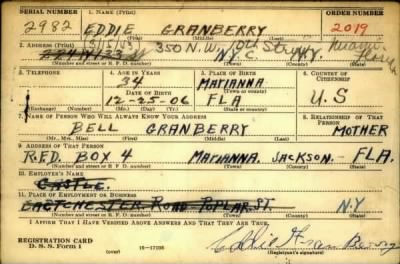 SERIAL NUMBER 1. NAME (Print) ORDER NUMBER
2982 EDDIE GRANBERRY 2019
2. ADDRESS (Print) 350 N.W. 10th Street Miami
N.Y.C. N.Y. Florida
(Number and street or R. F. D. number) (Town) (County) (State)
3. TELEPHONE 4. AGE IN YEARS 5. PLACE OF BIRTH 6. COUNTRY OF CITIZENSHIP
34 MARIANNA
DATE OF BIRTH (Town or county)
12-25-06 FLA U.S
(Exchange) (Number) (Mo.) (Day) (Yr.) (State or country)
7. NAME OF PERSON WHO WILL ALWAYS KNOW YOUR ADDRESS 8. RELATIONSHIP OF THAT PERSON
BELL GRANBERRY MOTHER
(Mr., Mrs., Miss) (First) (Middle) (Last)
9. ADDRESS OF THAT PERSON
R.F.D. BOX 4 MARIANNA. JACKSON.- FLA.
(Number and street or R. F. D. number) (Town) (County) (State)
10. EMPLOYER'S NAME
CASTLE.
11. PLACE OF EMPLOYMENT OR BUSINESS
EASTCHESTER ROAD POPLAR ST. N.Y
(Number and street or R. F. D. number) (Town) (County) (State)
I AFFIRM THAT I HAVE VERIFIED ABOVE ANSWERS AND THAT THEY ARE TRUE.
REGISTRATION CARD
D. S. S. FORM 1 (over) 16-17105 Eddie Granberry
(Registrant's signature)